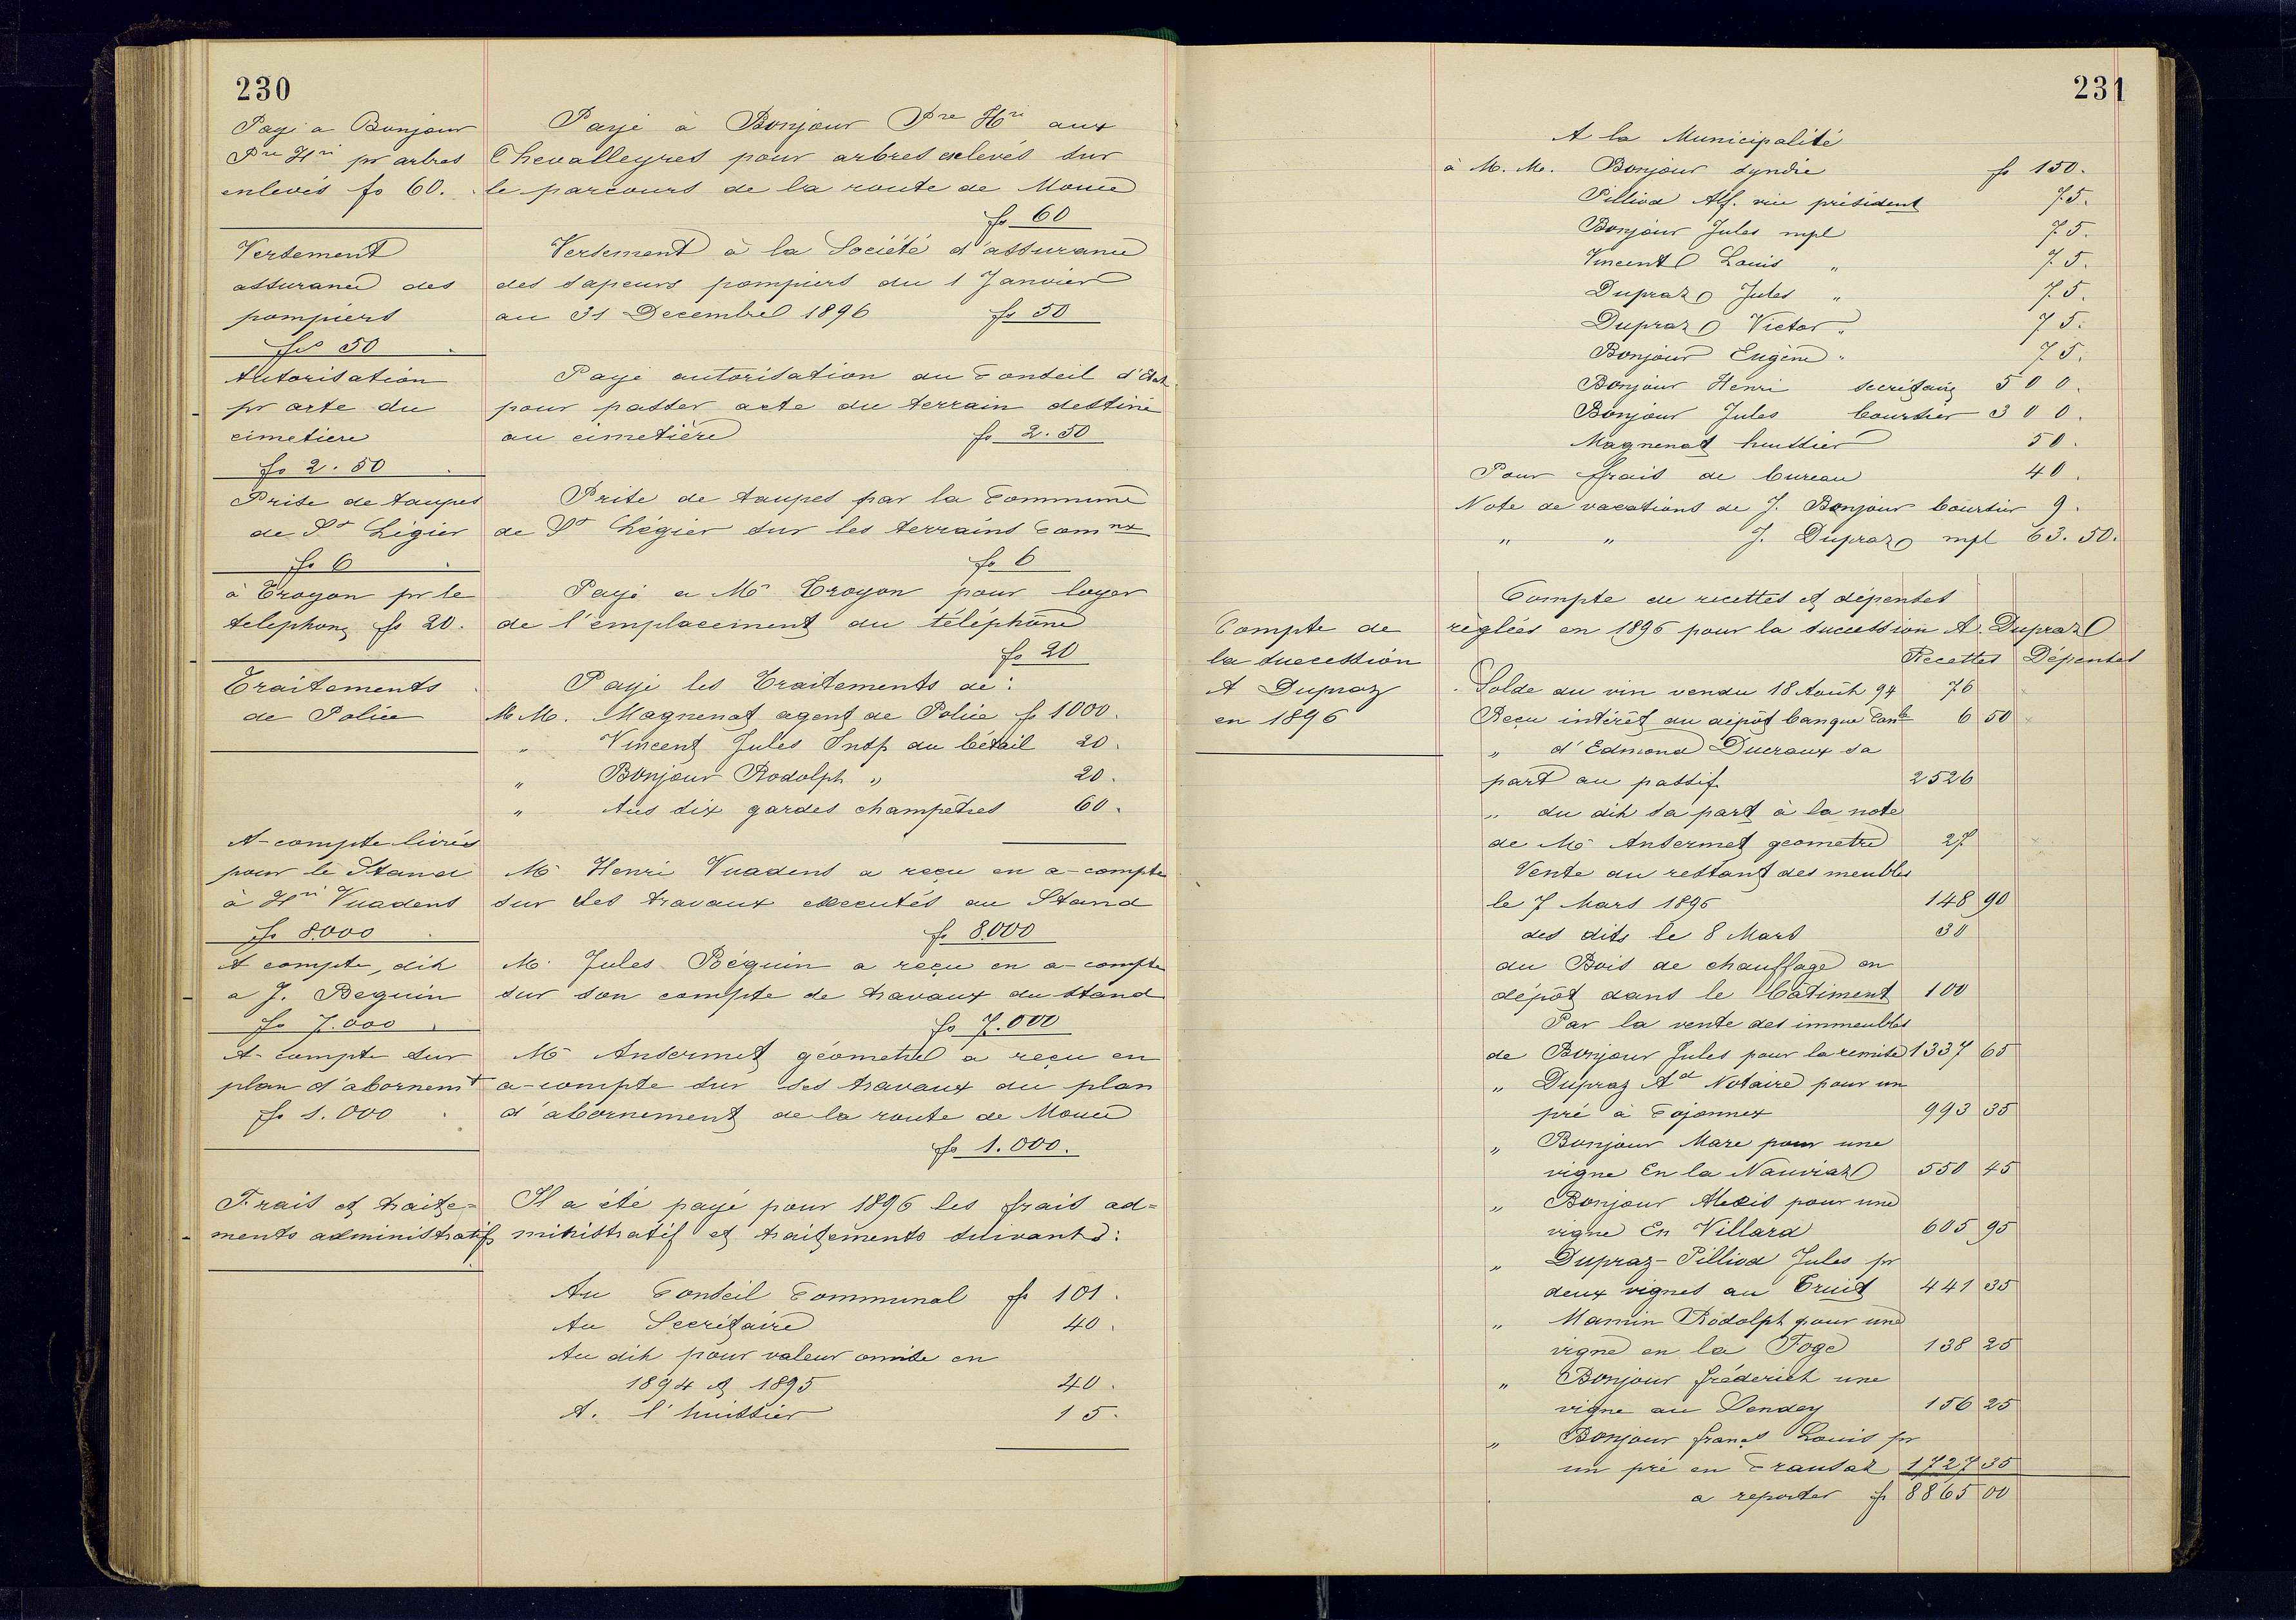 230
Payé a Bonjour
Pre Hri pr arbres
enlevés fs 60.
Payé à Bonjour Pre Hri aux
Chevalleyres pour arbres enlevés sur
le parcours de la route de
fs 60
Versement
assurance des
pompiers
frs 50
Versement à la Société d'assurance
des sapeurs pompiers du 1 Janvier
au 31 Decembre 1896 fs 50
Autorisation
pr acte du
cimetiere
fs 2.50
Payé autorisation au Conseil d'Etat
pour passer acte du terrain destiné
au cimetière fs 2.50
Prise de taupes
de St Légier
fs 6
Prise de taupes par la Commune
de St Légier sur les terrains Comnx
fs 6
à Troyon pr le
telephone fs 20.
Payé a Mr Troyon pour loyer
de l'emplacement du téléphone
fs 20
Traitements
de Police
Payé les Traitements de :
M M. Magnenat agent de Police fs 1000.
" Vincent Jules Insp du bétail 20.
" Bonjour Rodolph " 20.
" Aus dix gardes champêtres 60.
A-compte livrés
pour le Stand
à Hri Vuadens
fs 8000
Mr Henri Vuadens a reçu en a-compte
sur ses travaux executés au Stand
fs 8000
A compte, dih
a J. Beguin
fs 7.000
M. Jules Béguin a reçu en a-compte
sur son compte de travaux du stand
fs 7.000
A-compte sur
plan d'abornemt
fs 1.000
Mr Ansermet géometre a reçu en
a-compte sur ses travaux du plan
d'abornement de la route de
fs 1.000.
Frais et traite=
ments administratifs
Il a été payé pour 1896 les frais ad=
ministratif et traitements suivants :
Au Conseil Communal fs 101.
Au Secrétaire 40.
Au dih pour valeur omise en
1894 et 1895 40.
A. l'huissier 15.
231
A la Municipalité
à M. M. Bonjour syndic fs 150.
Pilliod Alf. vice président 75.
Bonjour Jules mpl 75.
Vincent Louis " 75.
Dupraz Jules " 75.
Dupraz Victor " 75.
Bonjour Eugène " 75.
Bonjour Henri secrétaire 500.
Bonjour Jules boursier 300.
Magnenat huissier 50.
Pour frais de bureau 40.
Note de vacations de J. Bonjour boursier 9.
" " J. Dupraz mpl 63.50.
Compte de
la succession
A Dupraz
en 1896
Compte de recettes et dépenses
règlées en 1896 pour la succession A. Dupraz
Recettes Dépenses
Solde du vin vendu 18 Août 94 76
Reçu intérêt au dépôt banque Canle 6 50
" d'Edmond Ducraux sa
part au passif 2526
" du dih sa part à la note
de Mr Ansermet geometre 27
Vente du restant des meubles
le 7 Mars 1896 148 90
des dits le 8 Mars 30
du Bois de chauffage en
dépôt dans le bâtiment 100
Par la vente des immeubles
de Bonjour Jules pour la remise 1337 65
" Dupraz Ad Notaire pour un
pré à Cojonnex 993 35
" Bonjour Marc pour une
vigne En la Nauviaz 550 45
" Bonjour Alexis pour une
vigne En Villard 605 95
" Dupraz-Pilliod Jules pr
deux vignes au Cruit 441 35
" Mamin Rodolph pour une
vigne en la Foge 138 25
" Bonjour fréderich une
vigne au Dendey 156 25
" Bonjour franÇs Louis pr
un pré en Crausaz 1727 35
a reporter fs 8865 00